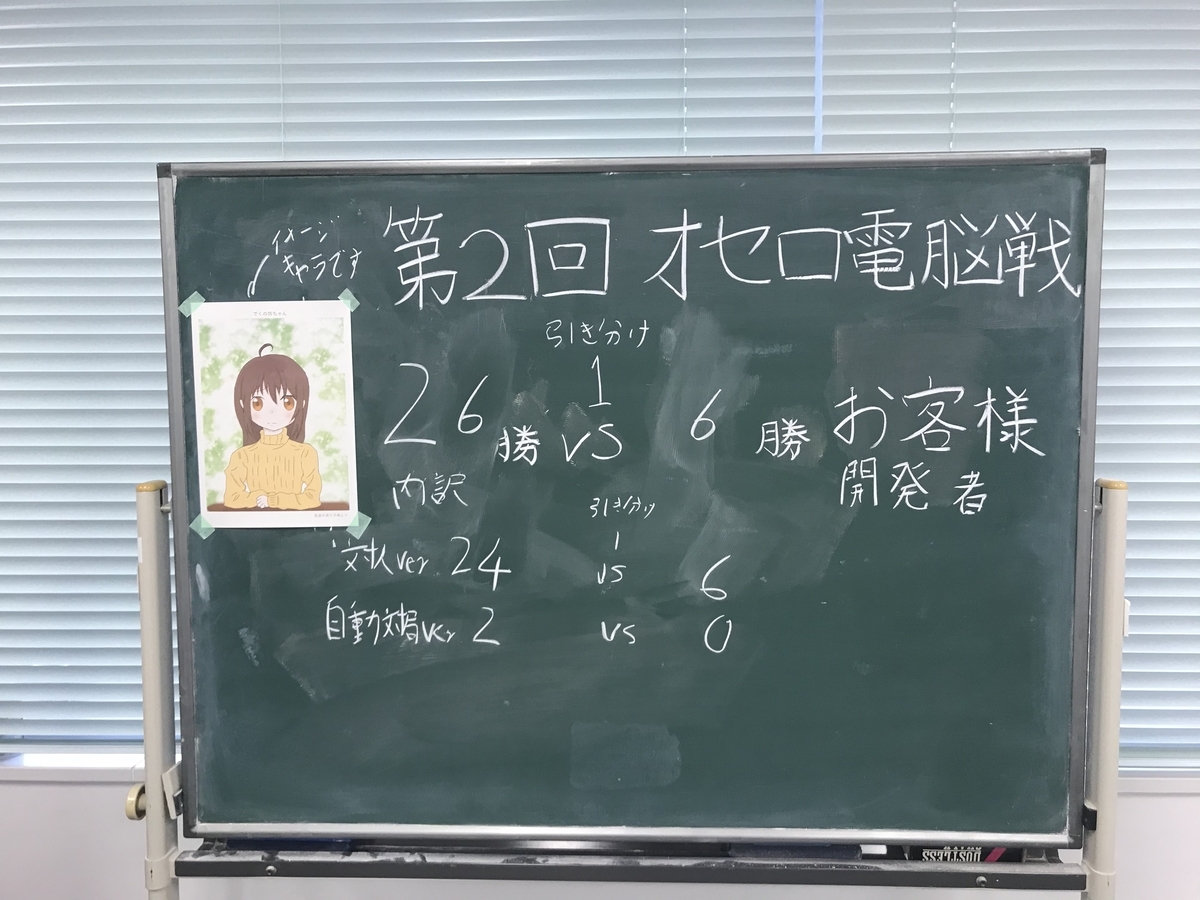 イメージ
キャラです
第2回 オセロ電脳戦
引き分け
1
26勝 vs 6勝 お客様
開発者
内訳
引き分け
1
対人ver 24 vs 6
自動対局ver 2 vs 0
DUSTLESS